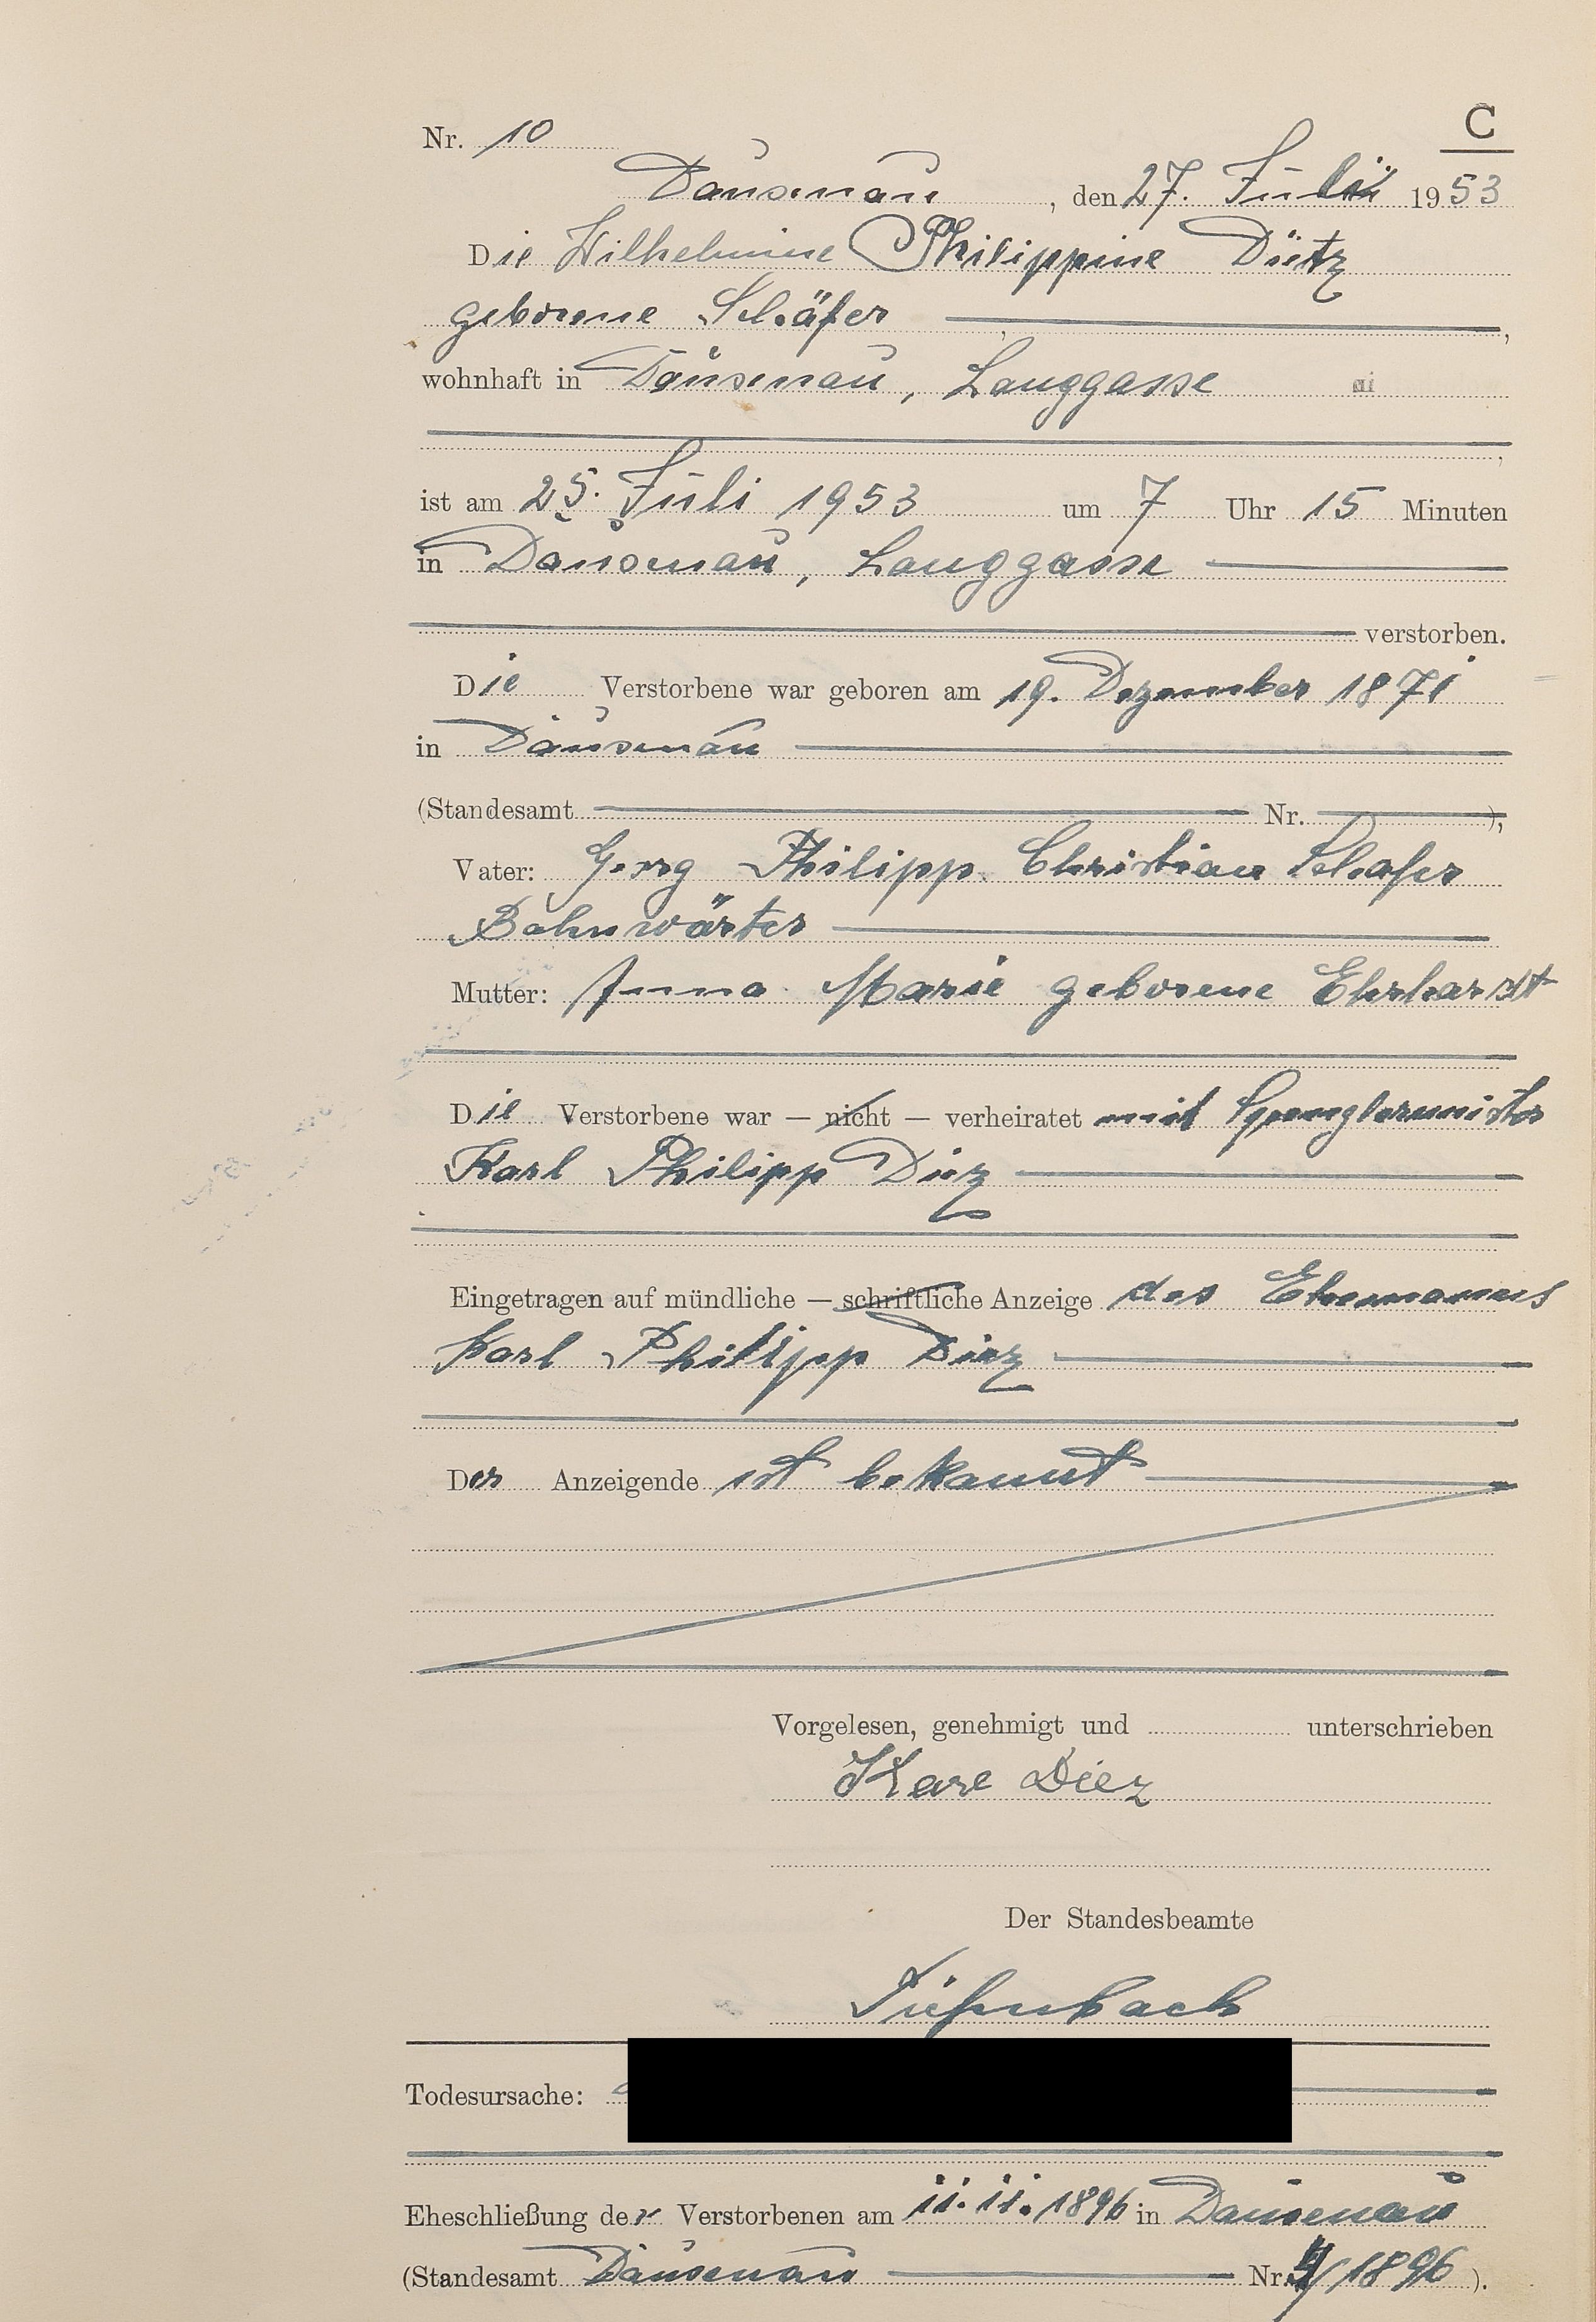 C
Nr. 10
Dausenau, den 27. Juli 1953
Die Wilhelmine Philippine Dietz
geborene Schäfer,
wohnhaft in Dausenau, Langgasse
ist am 25. Juli 1953 um 7 Uhr 15 Minuten
in Dausenau, Langgasse
verstorben.
Die Verstorbene war geboren am 19. Dezember 1871
in Dausenau
(Standesamt Nr. ),
Vater: Georg Philipp Christian Schäfer
Bahnwärter
Mutter: Anna Marie geborene Ehrhardt
Die Verstorbene war — nicht — verheiratet mit Spenglermeister
Karl Philipp Diez
Eingetragen auf mündliche — schriftliche Anzeige des Ehemannes
Karl Philipp Diez
Der Anzeigende ist bekannt
Vorgelesen, genehmigt und unterschrieben
Karl Diez
Der Standesbeamte
Tiefenbach
Todesursache:
Eheschließung der Verstorbenen am 11.11.1896 in Dausenau
(Standesamt Dausenau Nr. /1896).